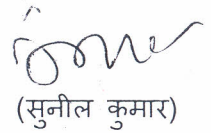 (सुनील कुमार)